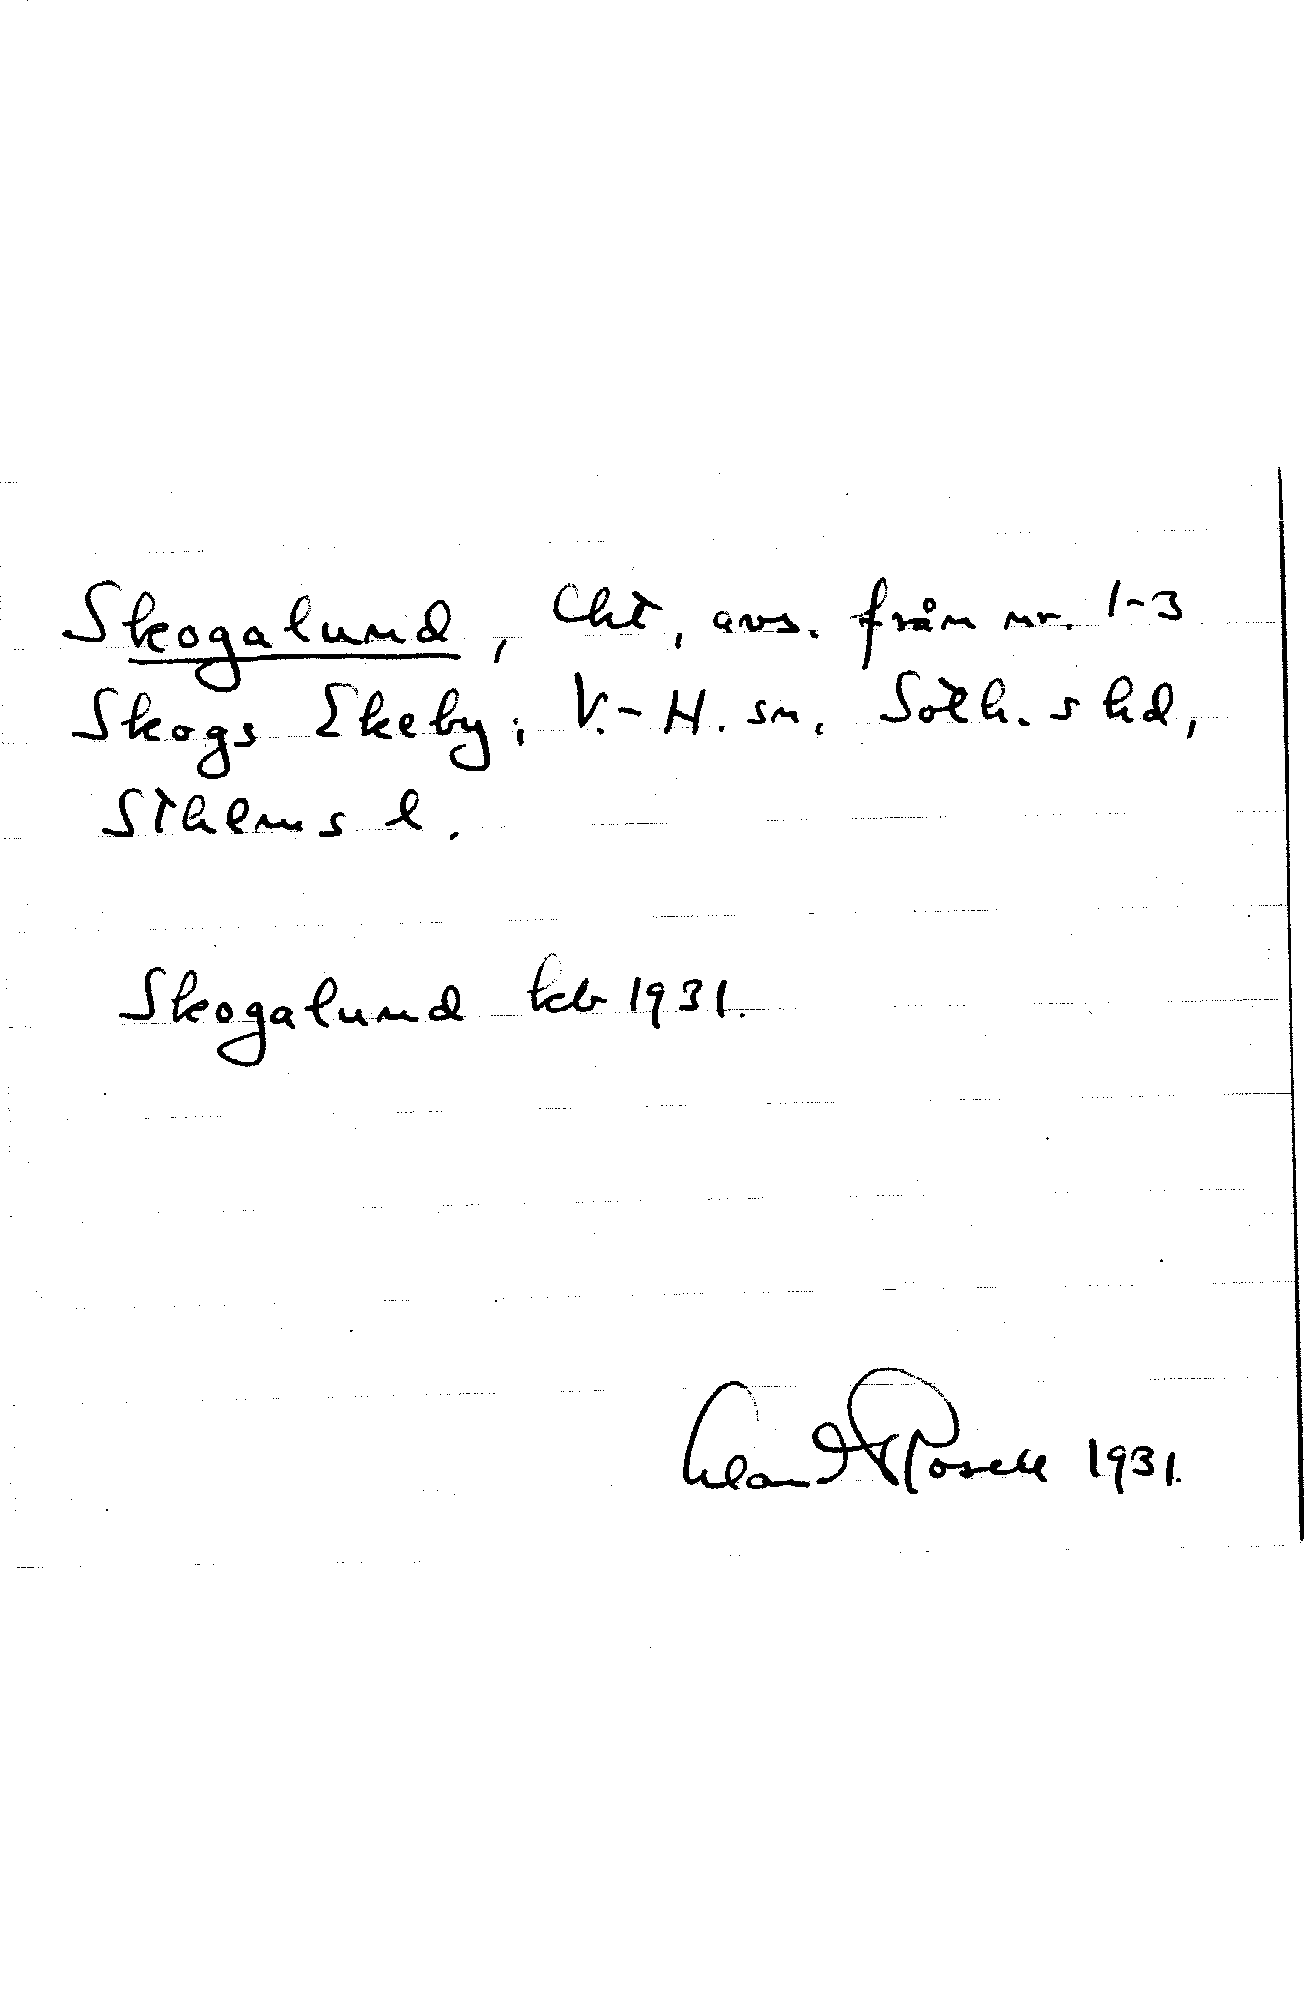 Skogalund, Cht, avs. från nr. 1-3
Skogs Ekeby, V.-H. sn. Soth. s hd,
Sthlms l.
Skogalund kb 1931.
Rosell 1931.